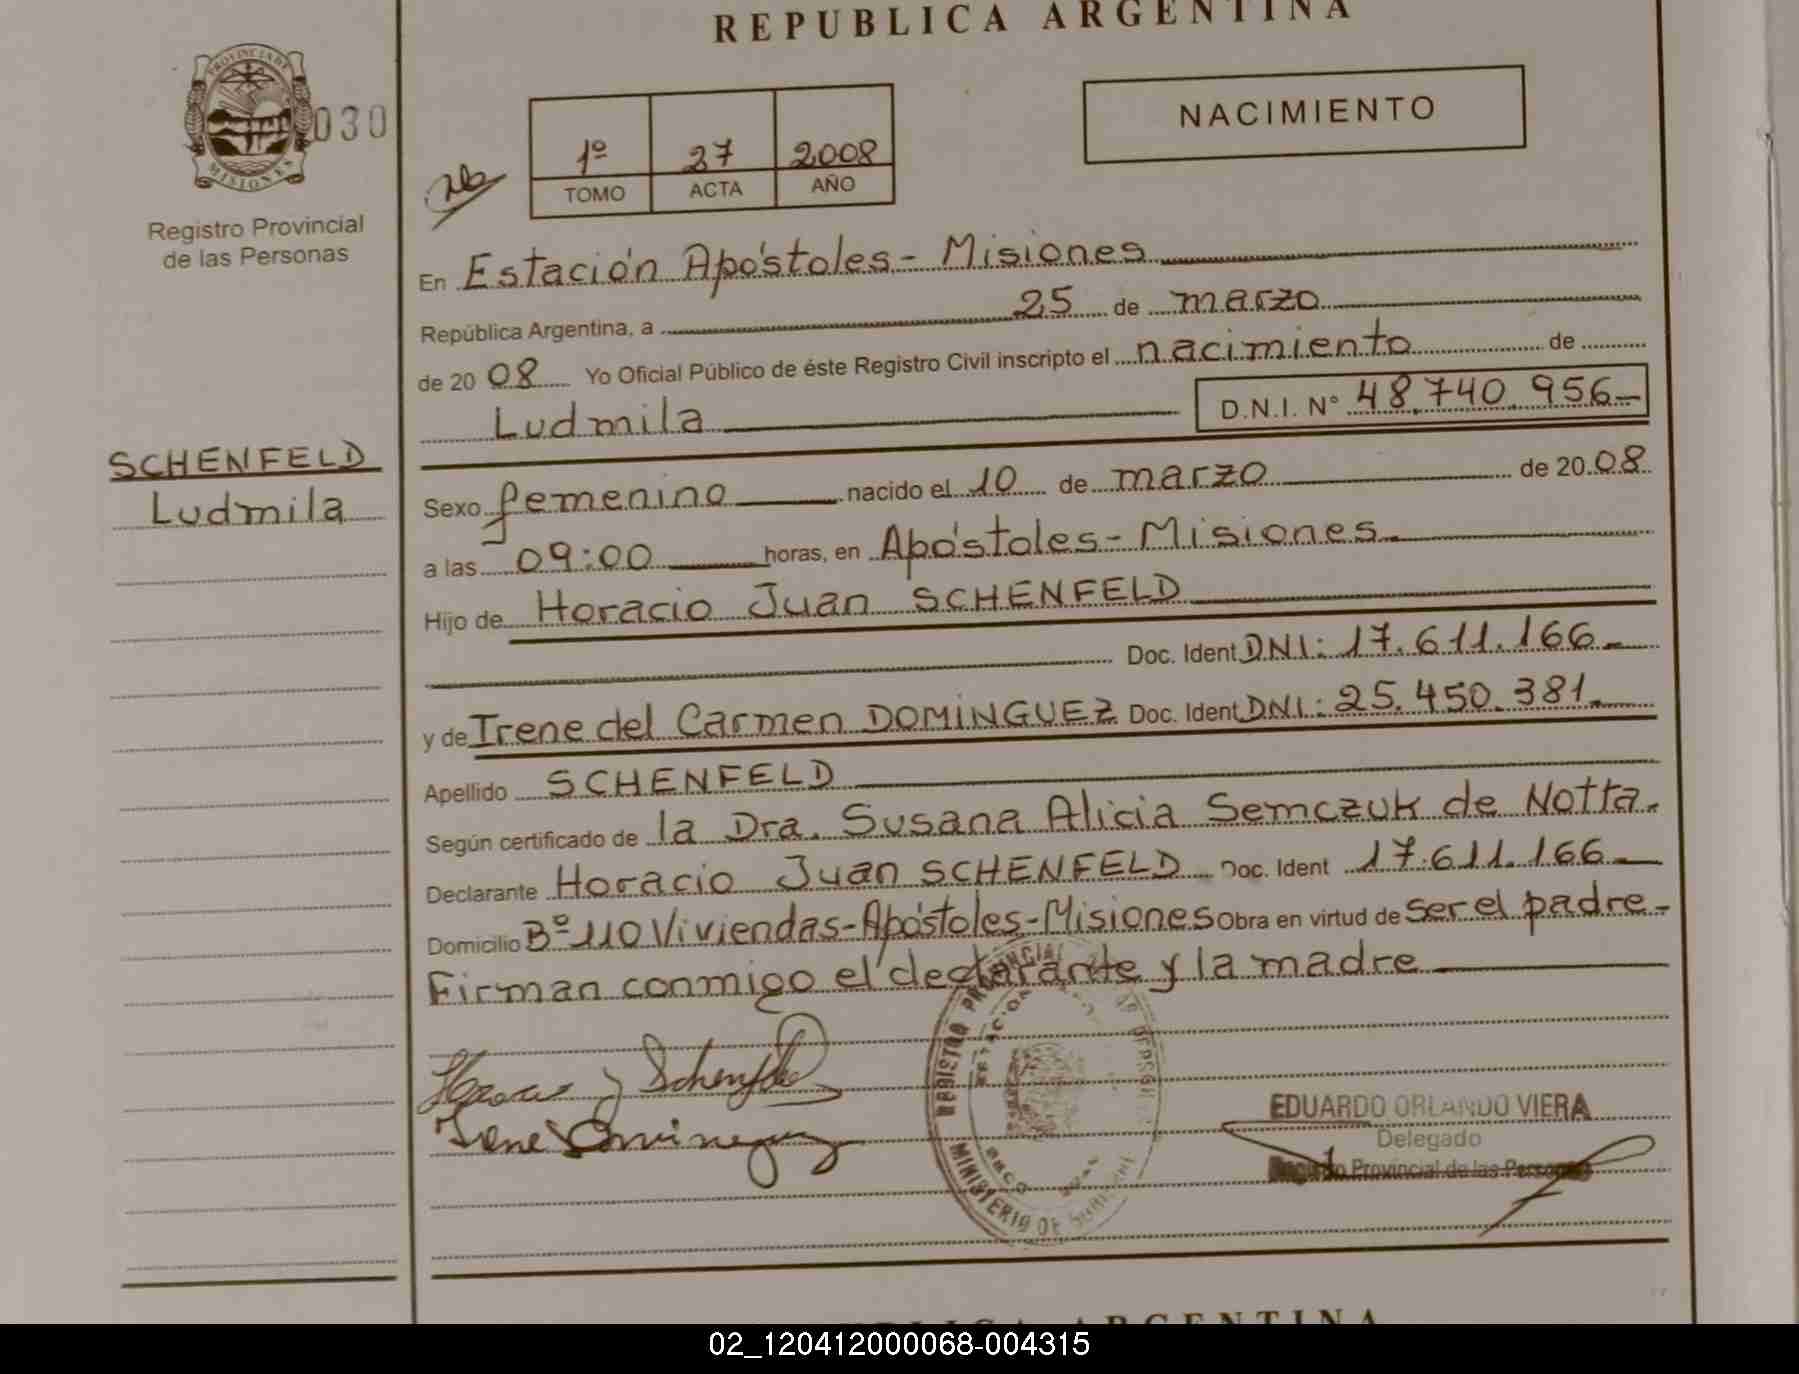 REPUBLICA ARGENTINA
PROVINCIA DE
MISIONES
030
Registro Provincial
de las Personas
1º 27 2008
TOMO ACTA AÑO
NACIMIENTO
En Estación Apóstoles - Misiones
República Argentina, a 25 de marzo
de 2008 Yo Oficial Público de éste Registro Civil inscripto el nacimiento de
Ludmila D.N.I. Nº 48.740.956-
SCHENFELD
Ludmila
Sexo femenino nacido el 10 de marzo de 2008
a las 09:00 horas, en Apóstoles - Misiones.
Hijo de Horacio Juan SCHENFELD
Doc. Ident DNI: 17.611.166.-
y de Irene del Carmen DOMINGUEZ Doc. Ident DNI: 25.450.381.-
Apellido SCHENFELD
Según certificado de la Dra. Susana Alicia Semczuk de Notta.
Declarante Horacio Juan SCHENFELD Doc. Ident 17.611.166.-
Domicilio Bº 110 Viviendas-Apóstoles-Misiones Obra en virtud de ser el padre-
Firman conmigo el declarante y la madre
REGISTRO PROVINCIAL
MINISTERIO DE
EDUARDO ORLANDO VIERA
Delegado
Registro Provincial de las Personas
REPUBLICA ARGENTINA
02_120412000068-004315